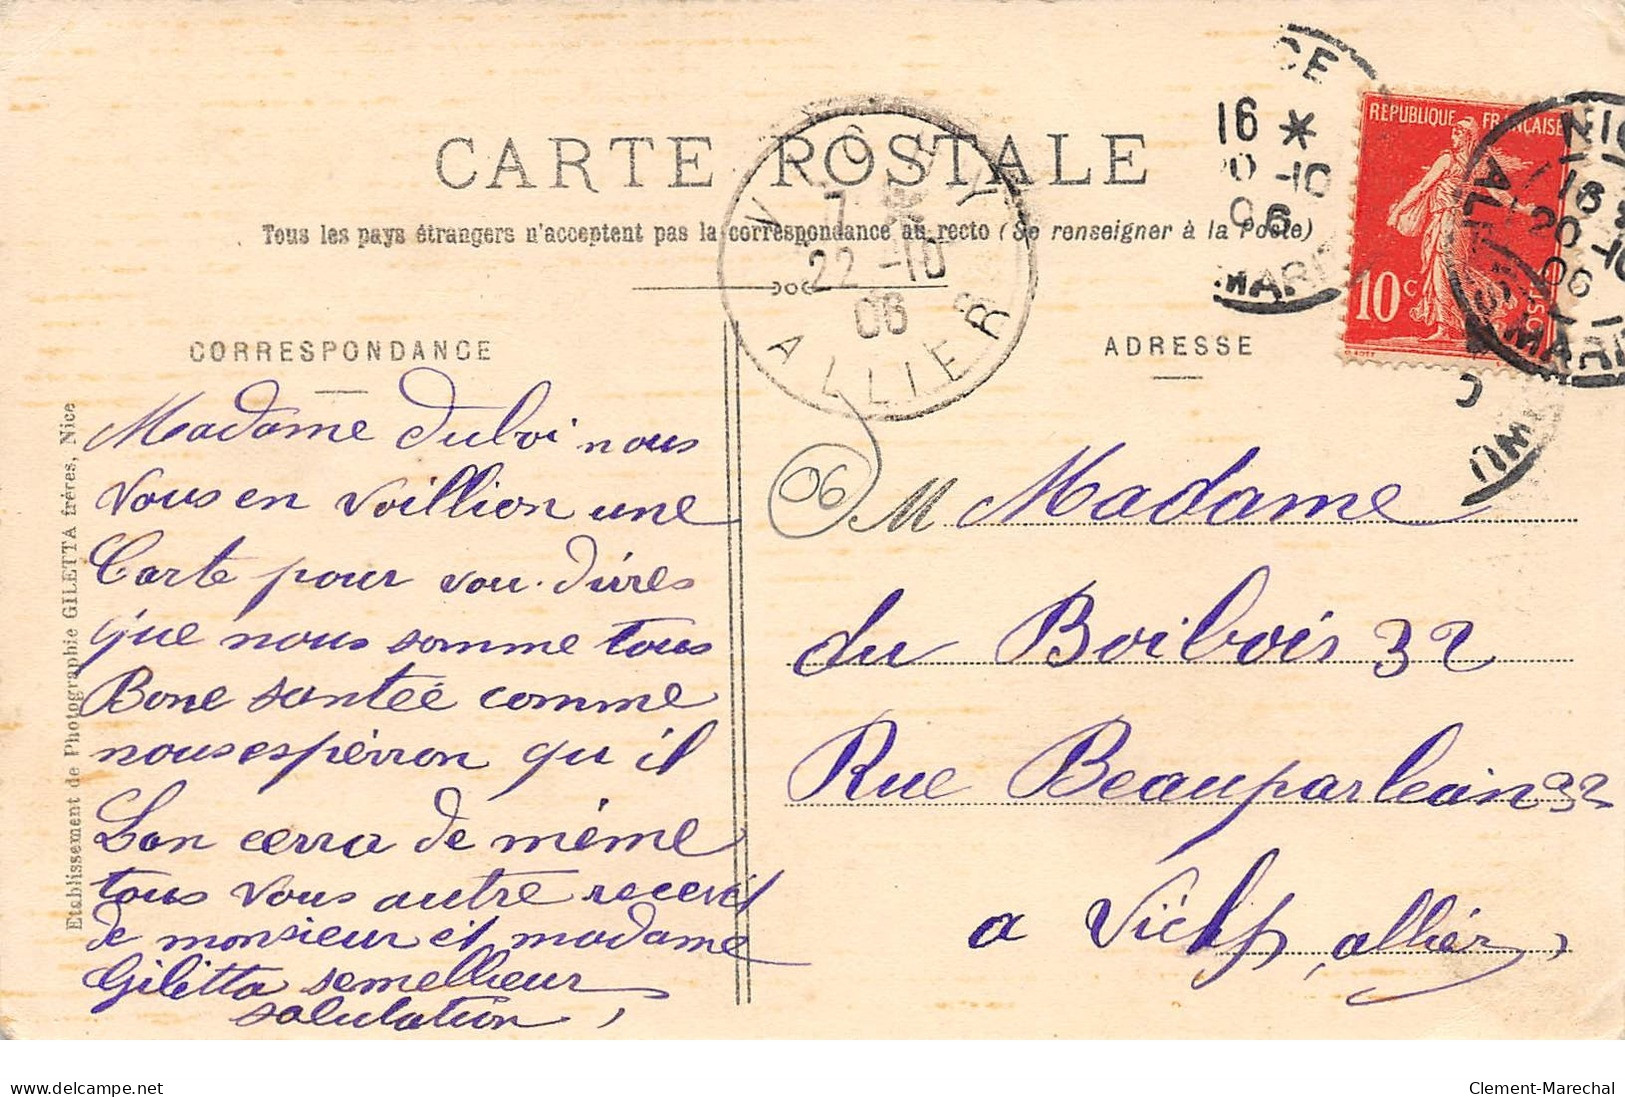 CARTE POSTALE
Tous les pays étrangers n'acceptent pas la correspondance au recto (Se renseigner à la Poste)
CORRESPONDANCE
Madame duboi nous
Vous en voillion une
Carte pour vou dires
que nous somme tous
Bone santée comme
nous espérron qu il
Son cerra de même
tous vous autre recevéz
de monsieur et madame
Giletta se mellieur
salutation,
Etablissement de Photographie GILETTA frères, Nice
VICHY
7
22 -10
06
ALLIER
06
CE
16 *
-10
06
MARIT
REPUBLIQUE FRANÇAISE
10c
NIC
16
20 10
06
ALP
MARIT
ADRESSE
M Madame
du Boibois 32
Rue Beauparlean 32
a Vichy, allier,
delcampe.net
Clement-Marechal